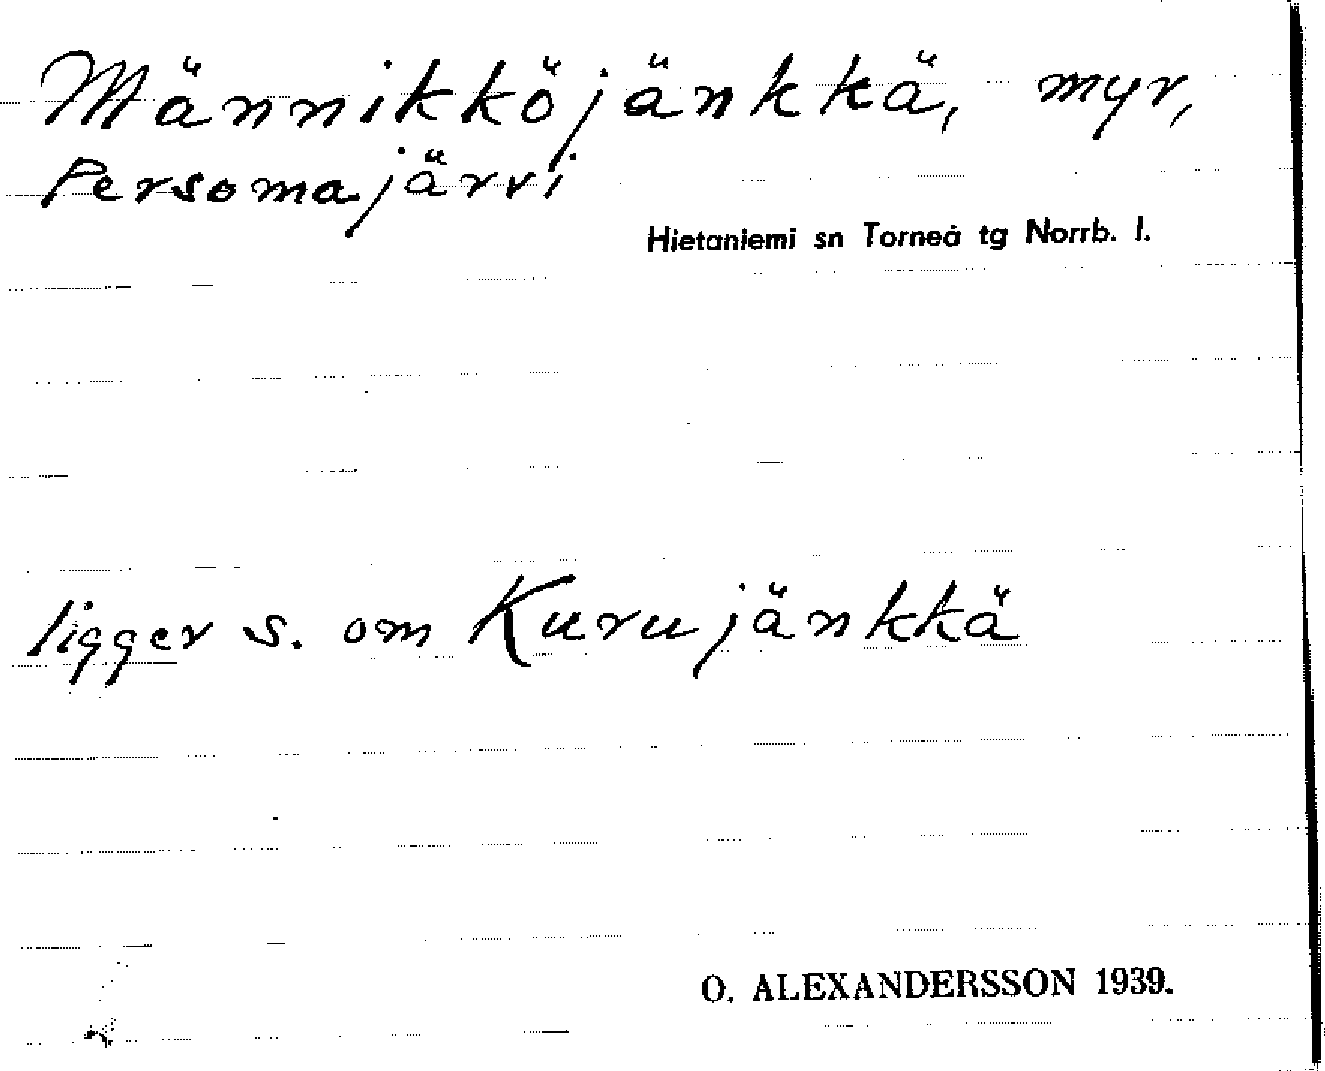 Männikköjänkkä, myr,
Persomajärvi
Hietaniemi sn Torneå tg Norrb. l.
ligger s. om Kurujänkkä
O. ALEXANDERSSON 1939.